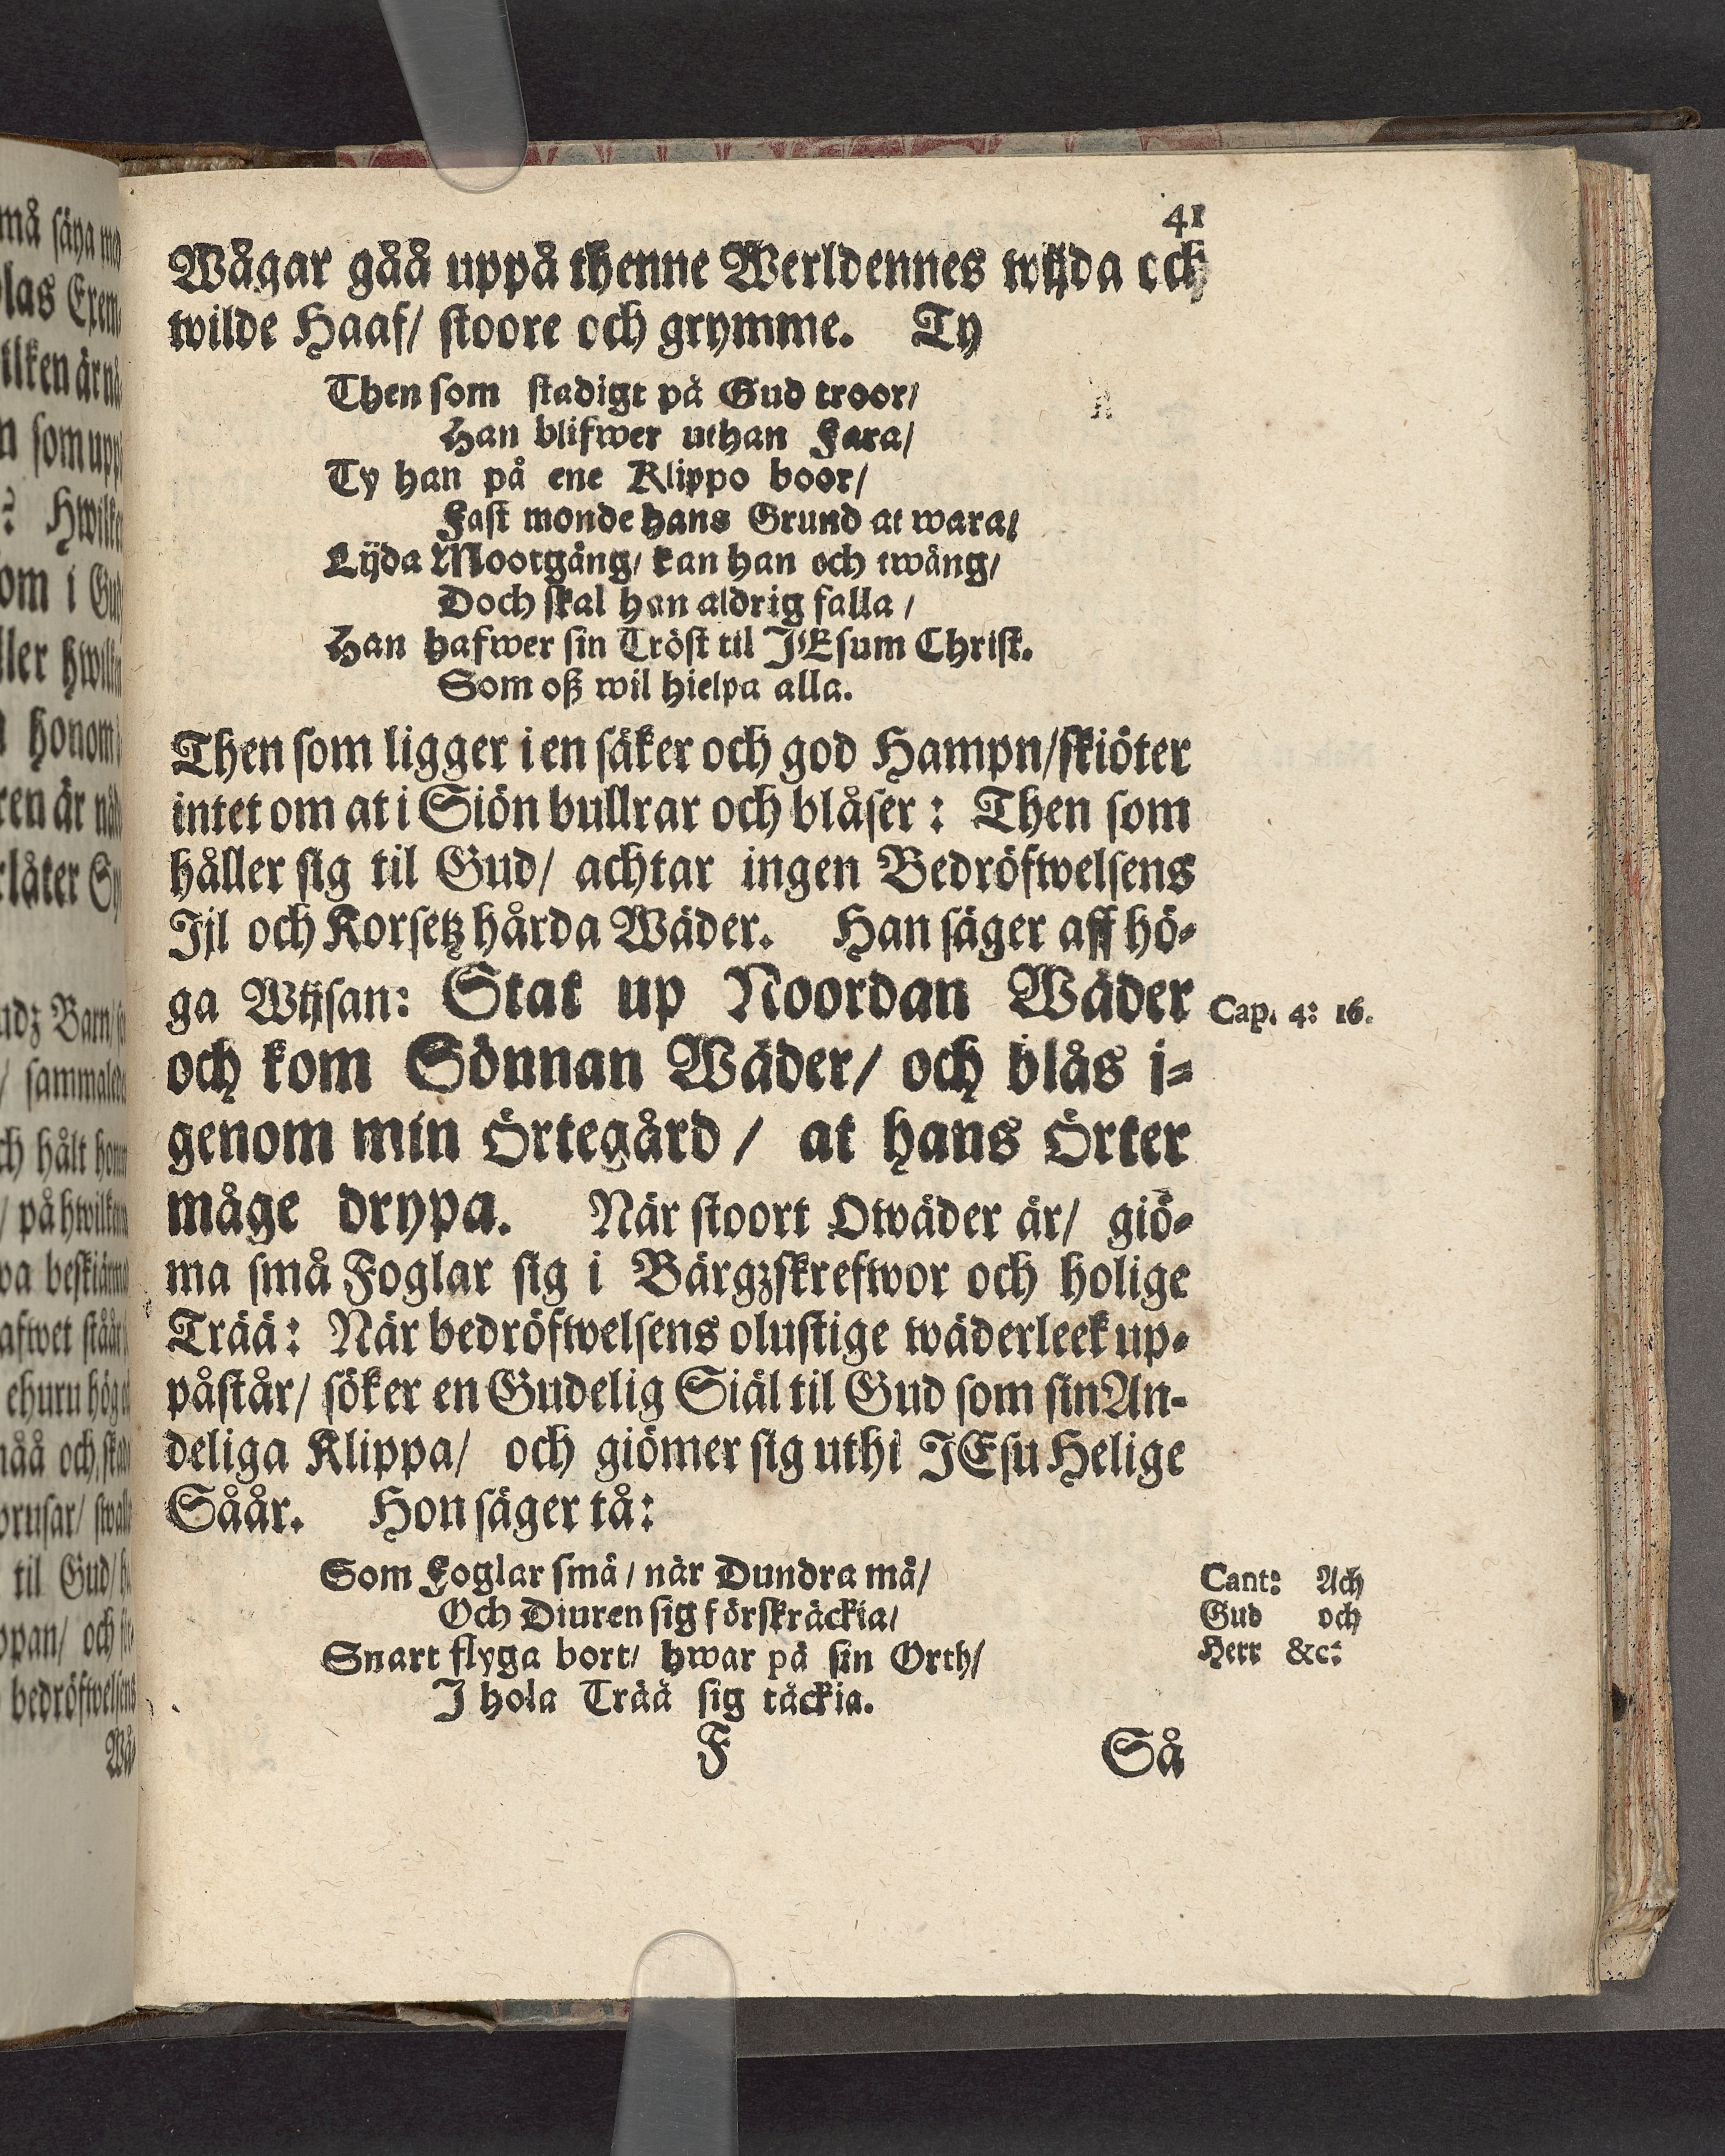 41
Wågar gåå uppå thenne Werldennes wijda och
wilde Haaf/ stoore och grymme. Ty
Then som stadigt på Gud troor/
Han blifwer uthan Fara/
Ty han på ene Klippo boor/
Fast monde hans Grund at wara/
Lijda Mootgång/ kan han och twång/
Doch skal han aldrig falla /
Han hafwer sin Tröst til JEsum Christ.
Som oß wil hielpa alla.
Then som ligger i en säker och god Hampn/ skiöter
intet om at i Siön bullrar och blåser: Then som
håller sig til Gud/ achtar ingen Bedröfwelsens
Jjl och Korsetz hårda Wäder. Han säger aff hö-
ga Wijsan: Stat up Noordan Wäder
Cap. 4: 16.
och kom Sönnan Wäder/ och blås i-
genom min Örtegård/ at hans Örter
måge drypa. När stoort Owäder är/ giö-
ma små Foglar sig i Bärgzskrefwor och holige
Trää: När bedröfwelsens olustige wäderleek up-
påstår/ söker en Gudelig Siäl til Gud som sin An-
deliga Klippa/ och giömer sig uthi JEsu Helige
Såår. Hon säger tå:
Som Foglar små/ når Dundra må/
Och Diuren sig förskräckia/
Snart flyga bort/ hwar på sin Orth/
J hola Trää sig täckia.
Cant: Ach
Gud och
Herr &c:
F Så